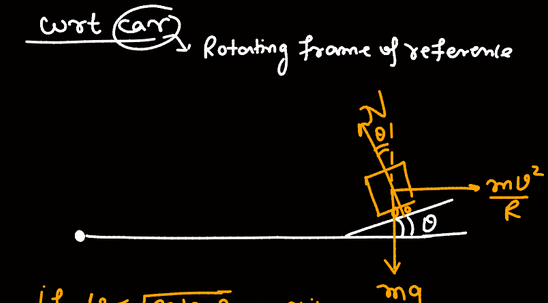 wrt car
Rotating frame of reference
N
θ
mv²/R
θ
θ
mg
if